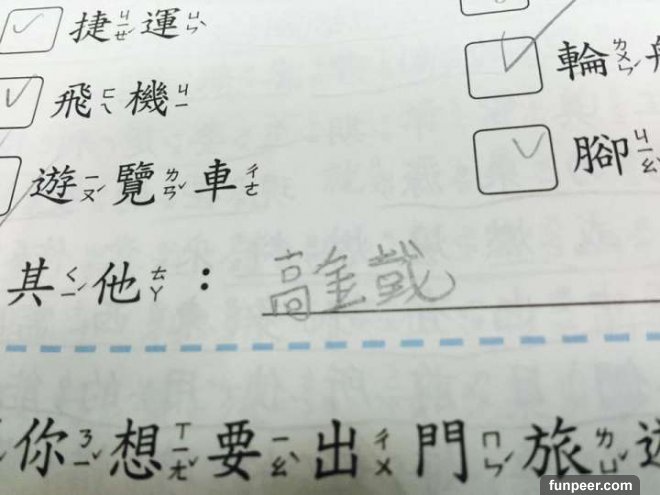 捷ㄐㄧㄝˊ運ㄩㄣˋ
輪ㄌㄨㄣˊ
飛ㄈㄟ機ㄐㄧ
腳ㄐㄧㄠˇ
遊ㄧㄡˊ覽ㄌㄢˇ車ㄔㄜ
其ㄑㄧˊ他ㄊㄚ：高鐵
你ㄋㄧˇ想ㄒㄧㄤˇ要ㄧㄠˋ出ㄔㄨ門ㄇㄣˊ旅ㄌㄩˇ
funpeer.com